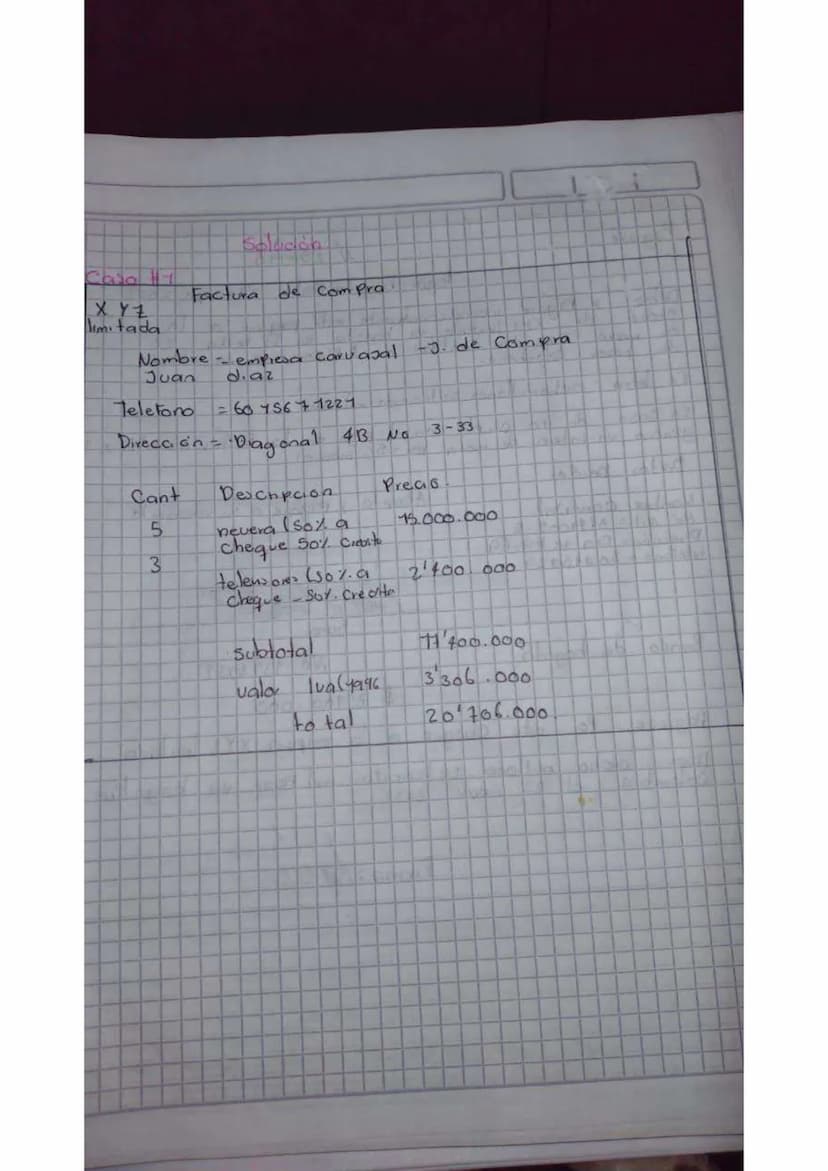 Solución
Caso #1
Factura de Compra
X Y Z
limitada
Nombre = empresa carvajal - J. de Compra
Juan diaz
Telefono = 60 756 7 1221
Dirección = Diagonal 4B No 3-33
Cant Descripcion Precio
5 nevera (50% a 15.000.000
cheque 50% Credito
3 televisores (50%.a 2'400.000
cheque - 50%. credito
subtotal 17'400.000
valor iva (19%) 3'306.000
total 20'706.000